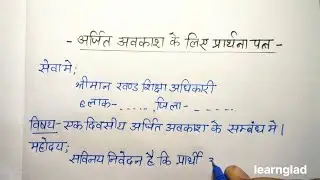 - अर्जित अवकाश के लिए प्रार्थना पत्र -
सेवा मे,
श्रीमान खण्ड शिक्षा अधिकारी
ब्लाक- - - - - -, जिला - - - - - -
विषय- एक दिवसीय अर्जित अवकाश के सम्बंध मे।
महोदय,
सविनय निवेदन है कि प्रार्थी
learnglad